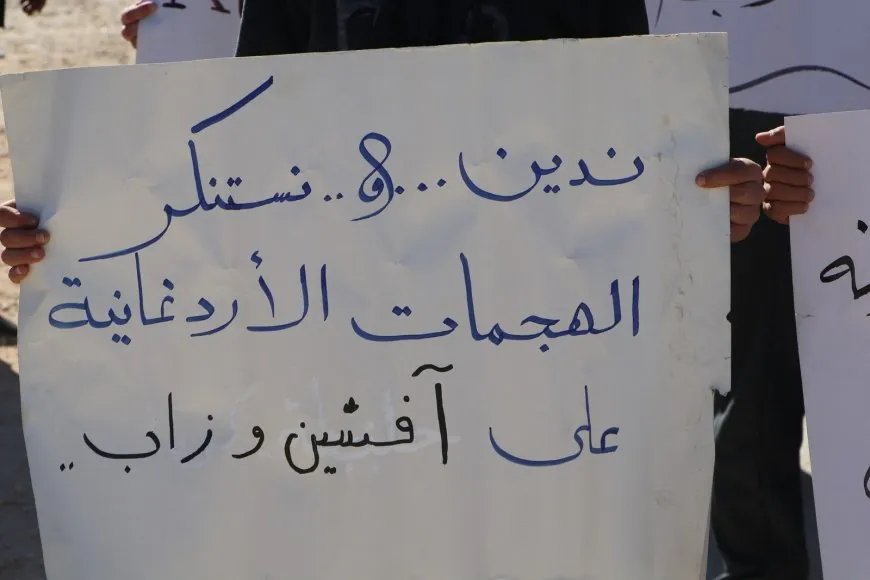 ندين...و..نستنكر
الهجمات الأردغانية
على آفشين و زاب..